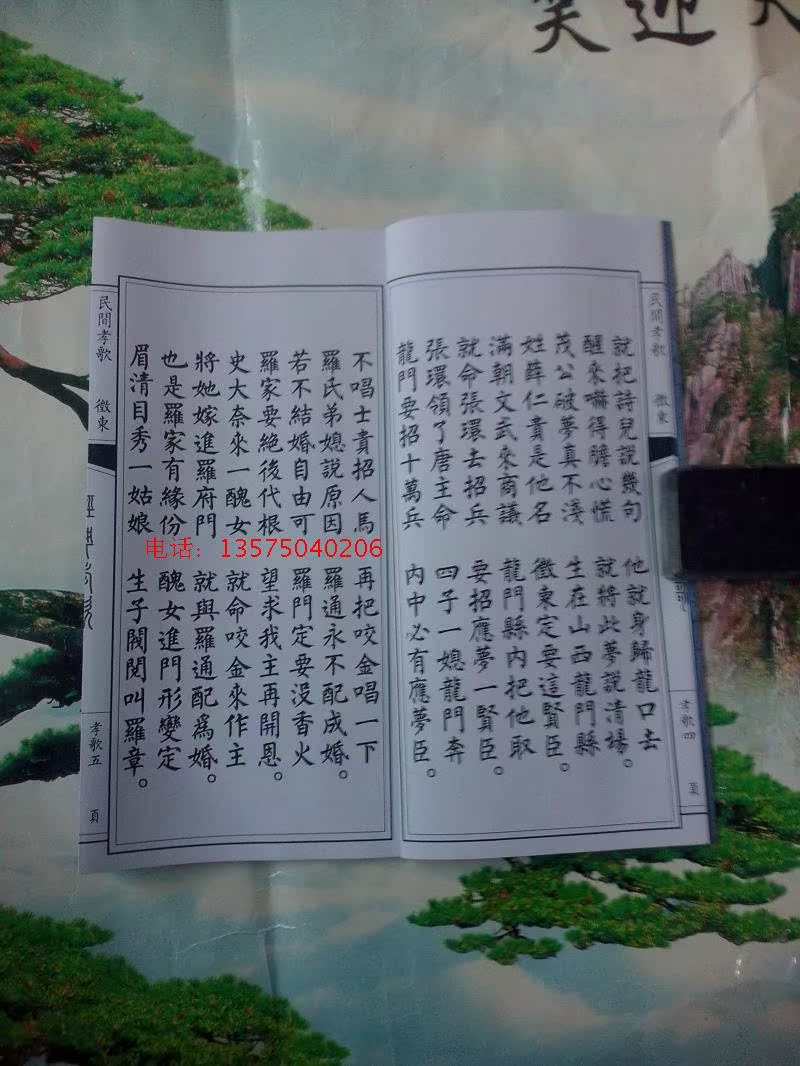 笑迎
民間孝歌 徵東
孝歌四 頁
就把詩兒說幾句 他就身歸龍口去
醒來嚇得膽心慌 就將此夢說清場。
茂公破夢真不淺 生在山西龍門縣
姓薛仁貴是他名 徵東定要這賢臣。
滿朝文武來商議 龍門縣內把他取
就命張環去招兵 要招應夢一賢臣。
張環領了唐主命 四子一媳龍門奔
龍門要招十萬兵 內中必有應夢臣。
不唱士貴招人馬 再把咬金唱一下
羅氏弟媳說原因 羅通永不配成婚。
若不結婚自由可 羅門定要沒香火
羅家要絕後代根 望求我主再開恩。
史大奈來一醜女 就命咬金來作主
將她嫁進羅府門 就與羅通配為婚。
也是羅家有緣份 醜女進門形變定
眉清目秀一姑娘 生子閥閱叫羅章。
民間孝歌 徵東
孝歌五 頁
电话：13575040206